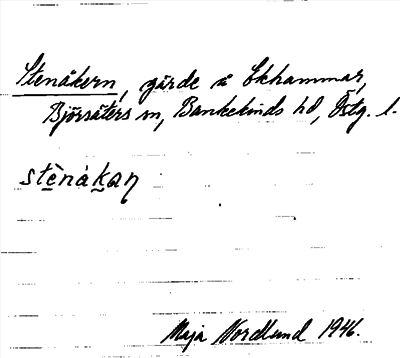 Stenåkern, gärde å Ekhammar,
Björsäters sn, Bankekinds hd, Östg. l.
stènàkaɳ
Maja Nordlund 1946.